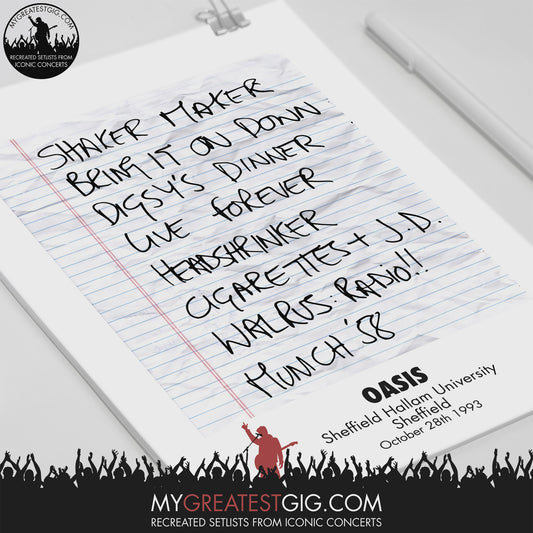 MYGREATESTGIG.COM
RECREATED SETLISTS FROM
ICONIC CONCERTS
SHAKER MAKER
BRING IT ON DOWN
DIGSY'S DINNER
LIVE FOREVER
HEADSHRINKER
CIGARETTES + J.D.
WALRUS: RADIO!!
MUNICH '58
OASIS
Sheffield Hallam University
Sheffield
October 28th 1993
MYGREATESTGIG.COM
RECREATED SETLISTS FROM ICONIC CONCERTS